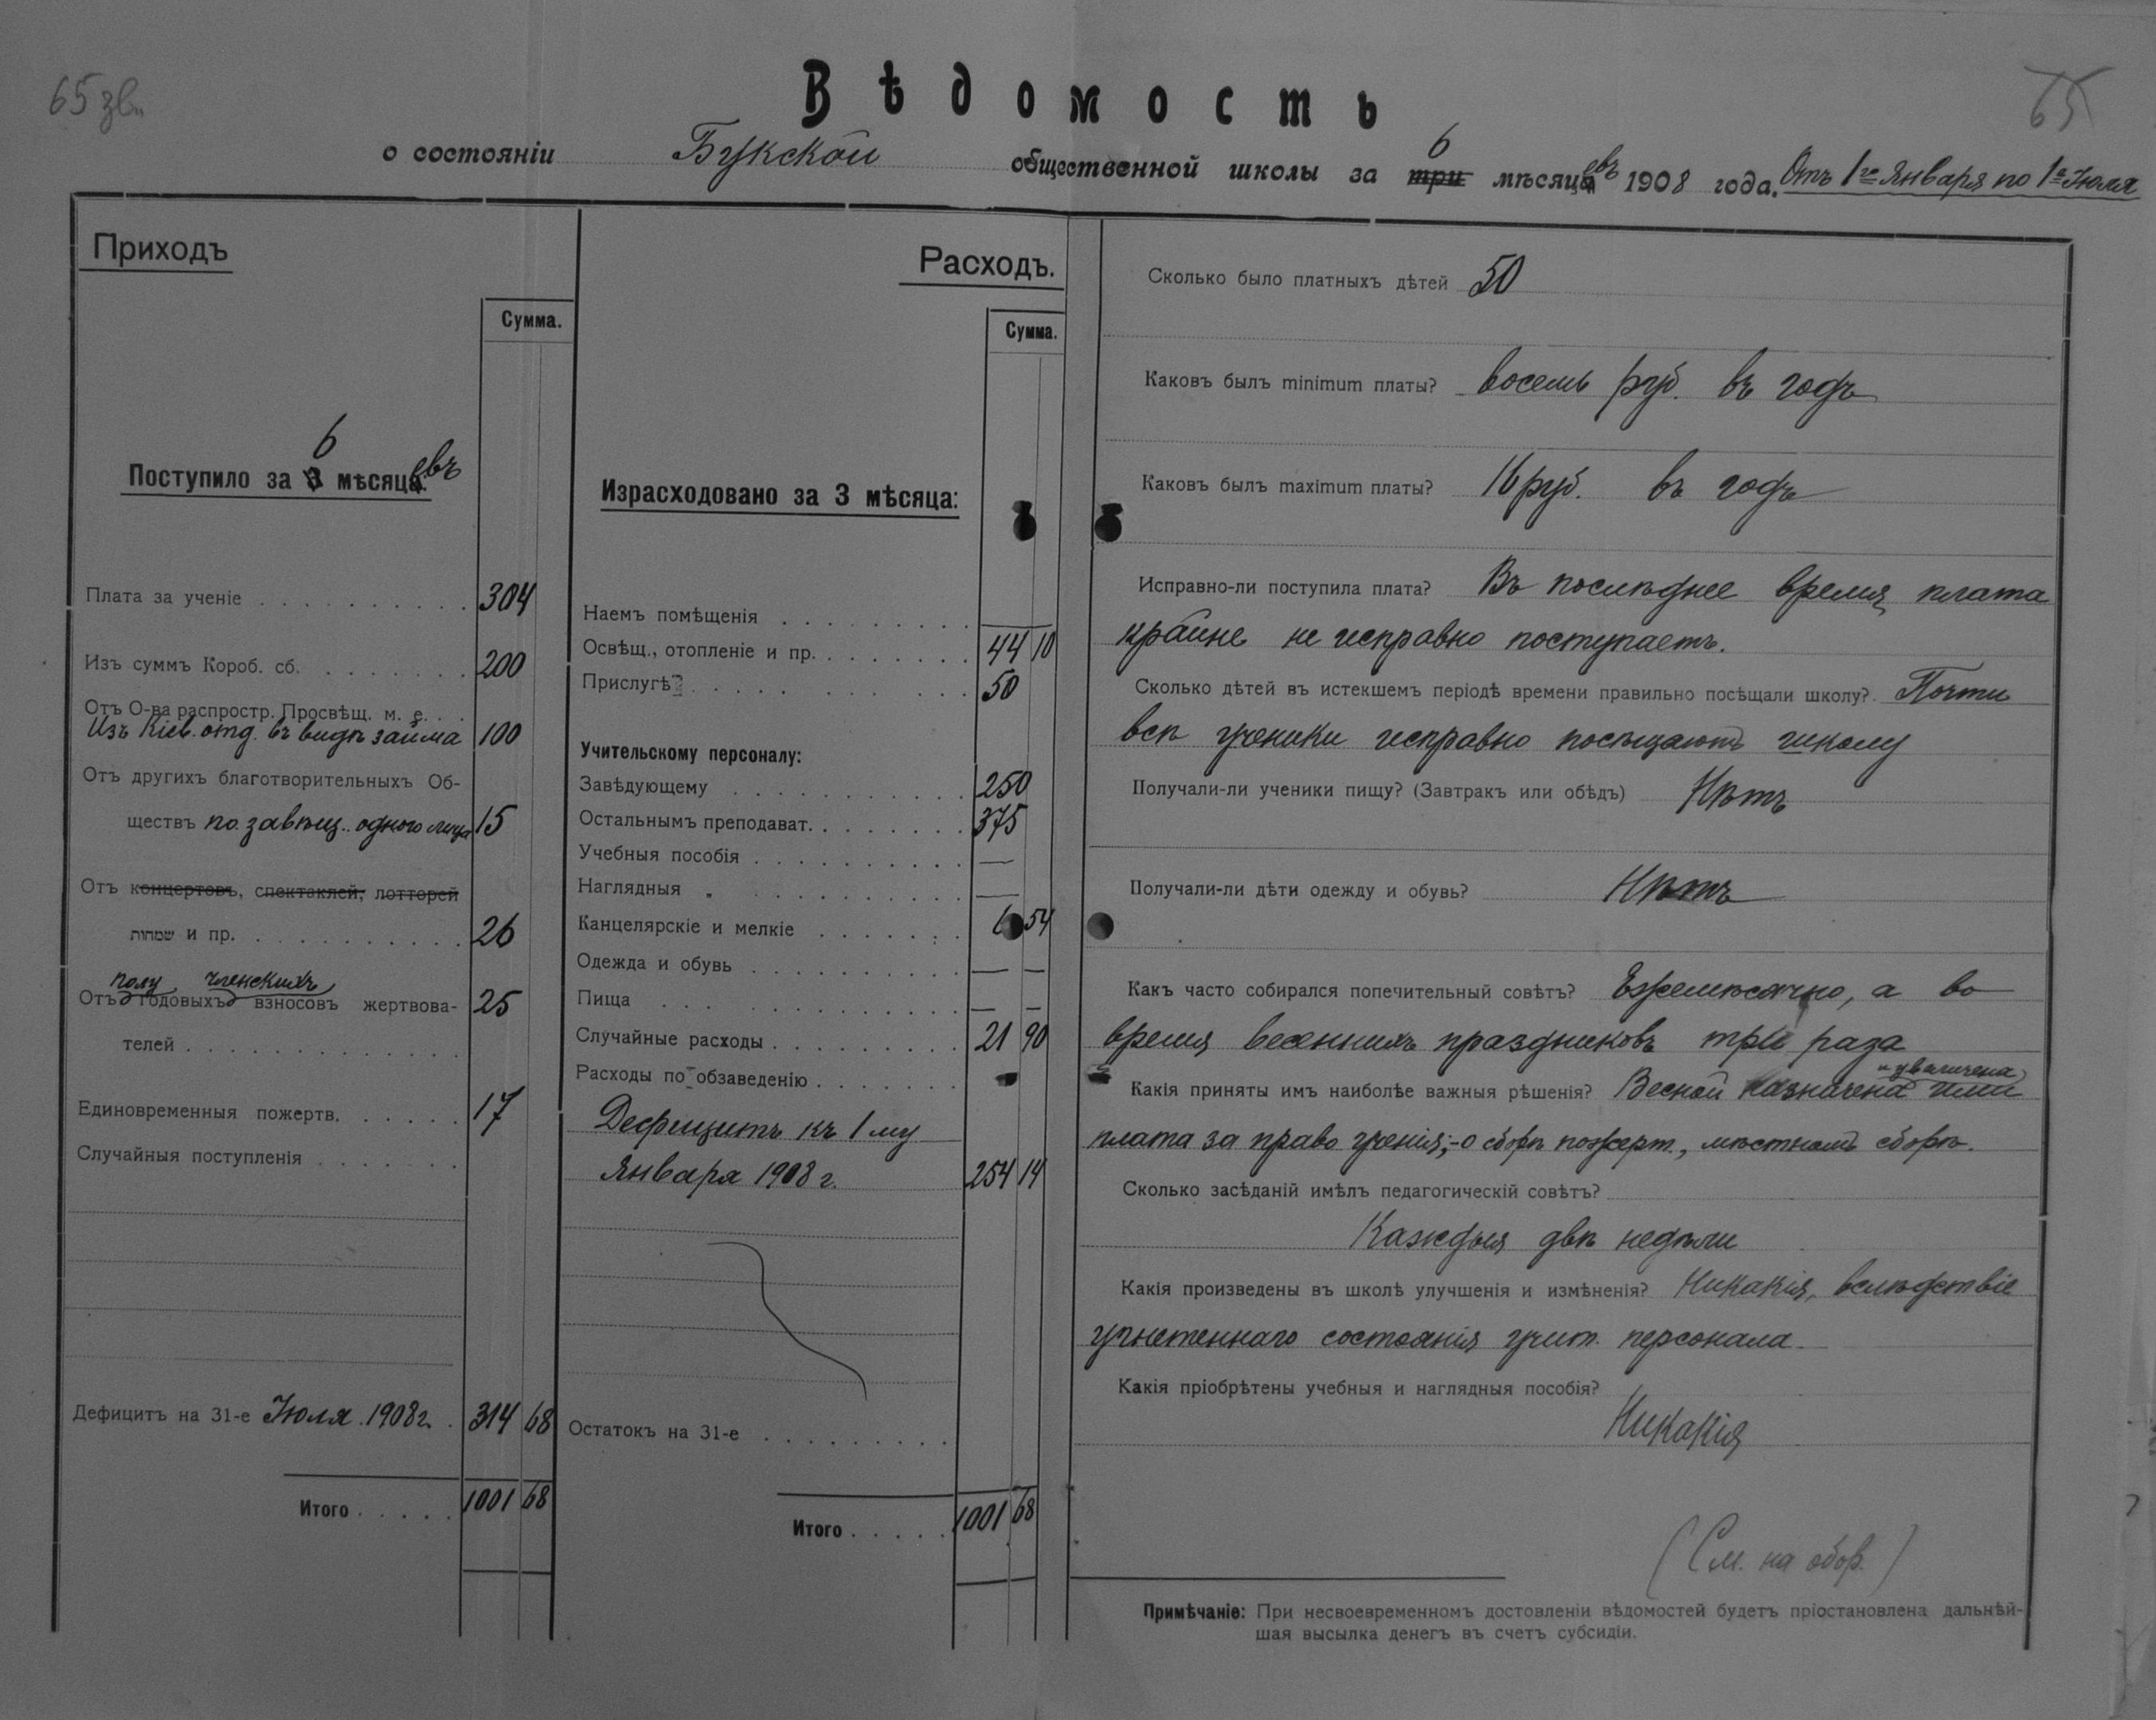 65 зв.
65
Вѣдомость
о состоянiи Букской общественной школы за 6 три мѣсяцевъ 1908 года. Отъ 1го Января по 1е Iюля
Приходъ
Сумма.
Поступило за 6 3 мѣсяцевъ
Плата за ученiе . . . . . . . . . . 304
Изъ суммъ Короб. сб. . . . . . . . 200
Отъ О-ва распростр. Просвѣщ. м. е. . .
Изъ Кiев. отд. въ видѣ займа 100
Отъ другихъ благотворительныхъ Об-
ществъ по завѣщ. одного лица 15
Отъ концертовъ, спектаклей, лотторей
שמחות и пр. . . . . . . . . . . 26
полу членскихъ
Отъ годовыхъ взносовъ жертвова- 25
телей . . . . . . . . . . . . .
Единовременныя пожертв. . . . . . 17
Случайныя поступленiя . . . . . . .
Дефицитъ на 31-е Iюля 1908 г. . 314 68
Итого . . . . . 1001 68
Расходъ.
Сумма.
Израсходовано за 3 мѣсяца:
Наемъ помѣщенiя . . . . . . . . . —
Освѣщ., отопленiе и пр. . . . . . . . 44 10
Прислугѣ . . . . . . . . . . . 50
Учительскому персоналу:
Завѣдующему . . . . . . . . . . . 250
Остальнымъ преподават. . . . . . . . 375
Учебныя пособiя . . . . . . . . . . —
Наглядныя „ . . . . . . . . . —
Канцелярскiе и мелкiе . . . . . . . 6 54
Одежда и обувь . . . . . . . . . . — —
Пища . . . . . . . . . . . . . — —
Случайные расходы . . . . . . . . . 21 90
Расходы по обзаведенiю . . . . . . .
Дефицитъ къ 1 му
Января 1908 г. 254 14
Остатокъ на 31-е . . . . . . . . .
Итого . . . . . 1001 68
Сколько было платныхъ дѣтей 50
Каковъ былъ minimum платы? восемь руб. въ годъ
Каковъ былъ maximum платы? 16 руб. въ годъ
Исправно-ли поступила плата? Въ послѣднее время плата
крайне не исправно поступаетъ.
Сколько дѣтей въ истекшемъ перiодѣ времени правильно посѣщали школу? Почти
всѣ ученики исправно посѣщаютъ школу
Получали-ли ученики пищу? (Завтракъ или обѣдъ) Нѣтъ
Получали-ли дѣти одежду и обувь? Нѣтъ
Какъ часто собирался попечительный совѣтъ? Ежемѣсячно, а во
время весеннихъ праздниковъ три раза
и увеличена
Какiя приняты имъ наиболѣе важныя рѣшенiя? Весной назначена ими
плата за право ученiя; - о сборѣ пожерт., мѣстномъ сборѣ.
Сколько засѣданiй имѣлъ педагогическiй совѣтъ?
Каждыя двѣ недѣли
Какiя произведены въ школѣ улучшенiя и измѣненiя? Никакiя, вслѣдствiе
угнетеннаго состоянiя учит. персонала.
Какiя прiобрѣтены учебныя и наглядныя пособiя?
Никакiя
(См. на обор.)
Примѣчанiе: При несвоевременномъ достовленiи вѣдомостей будетъ прiостановлена дальнѣй-
шая высылка денегъ въ счетъ субсидiи.